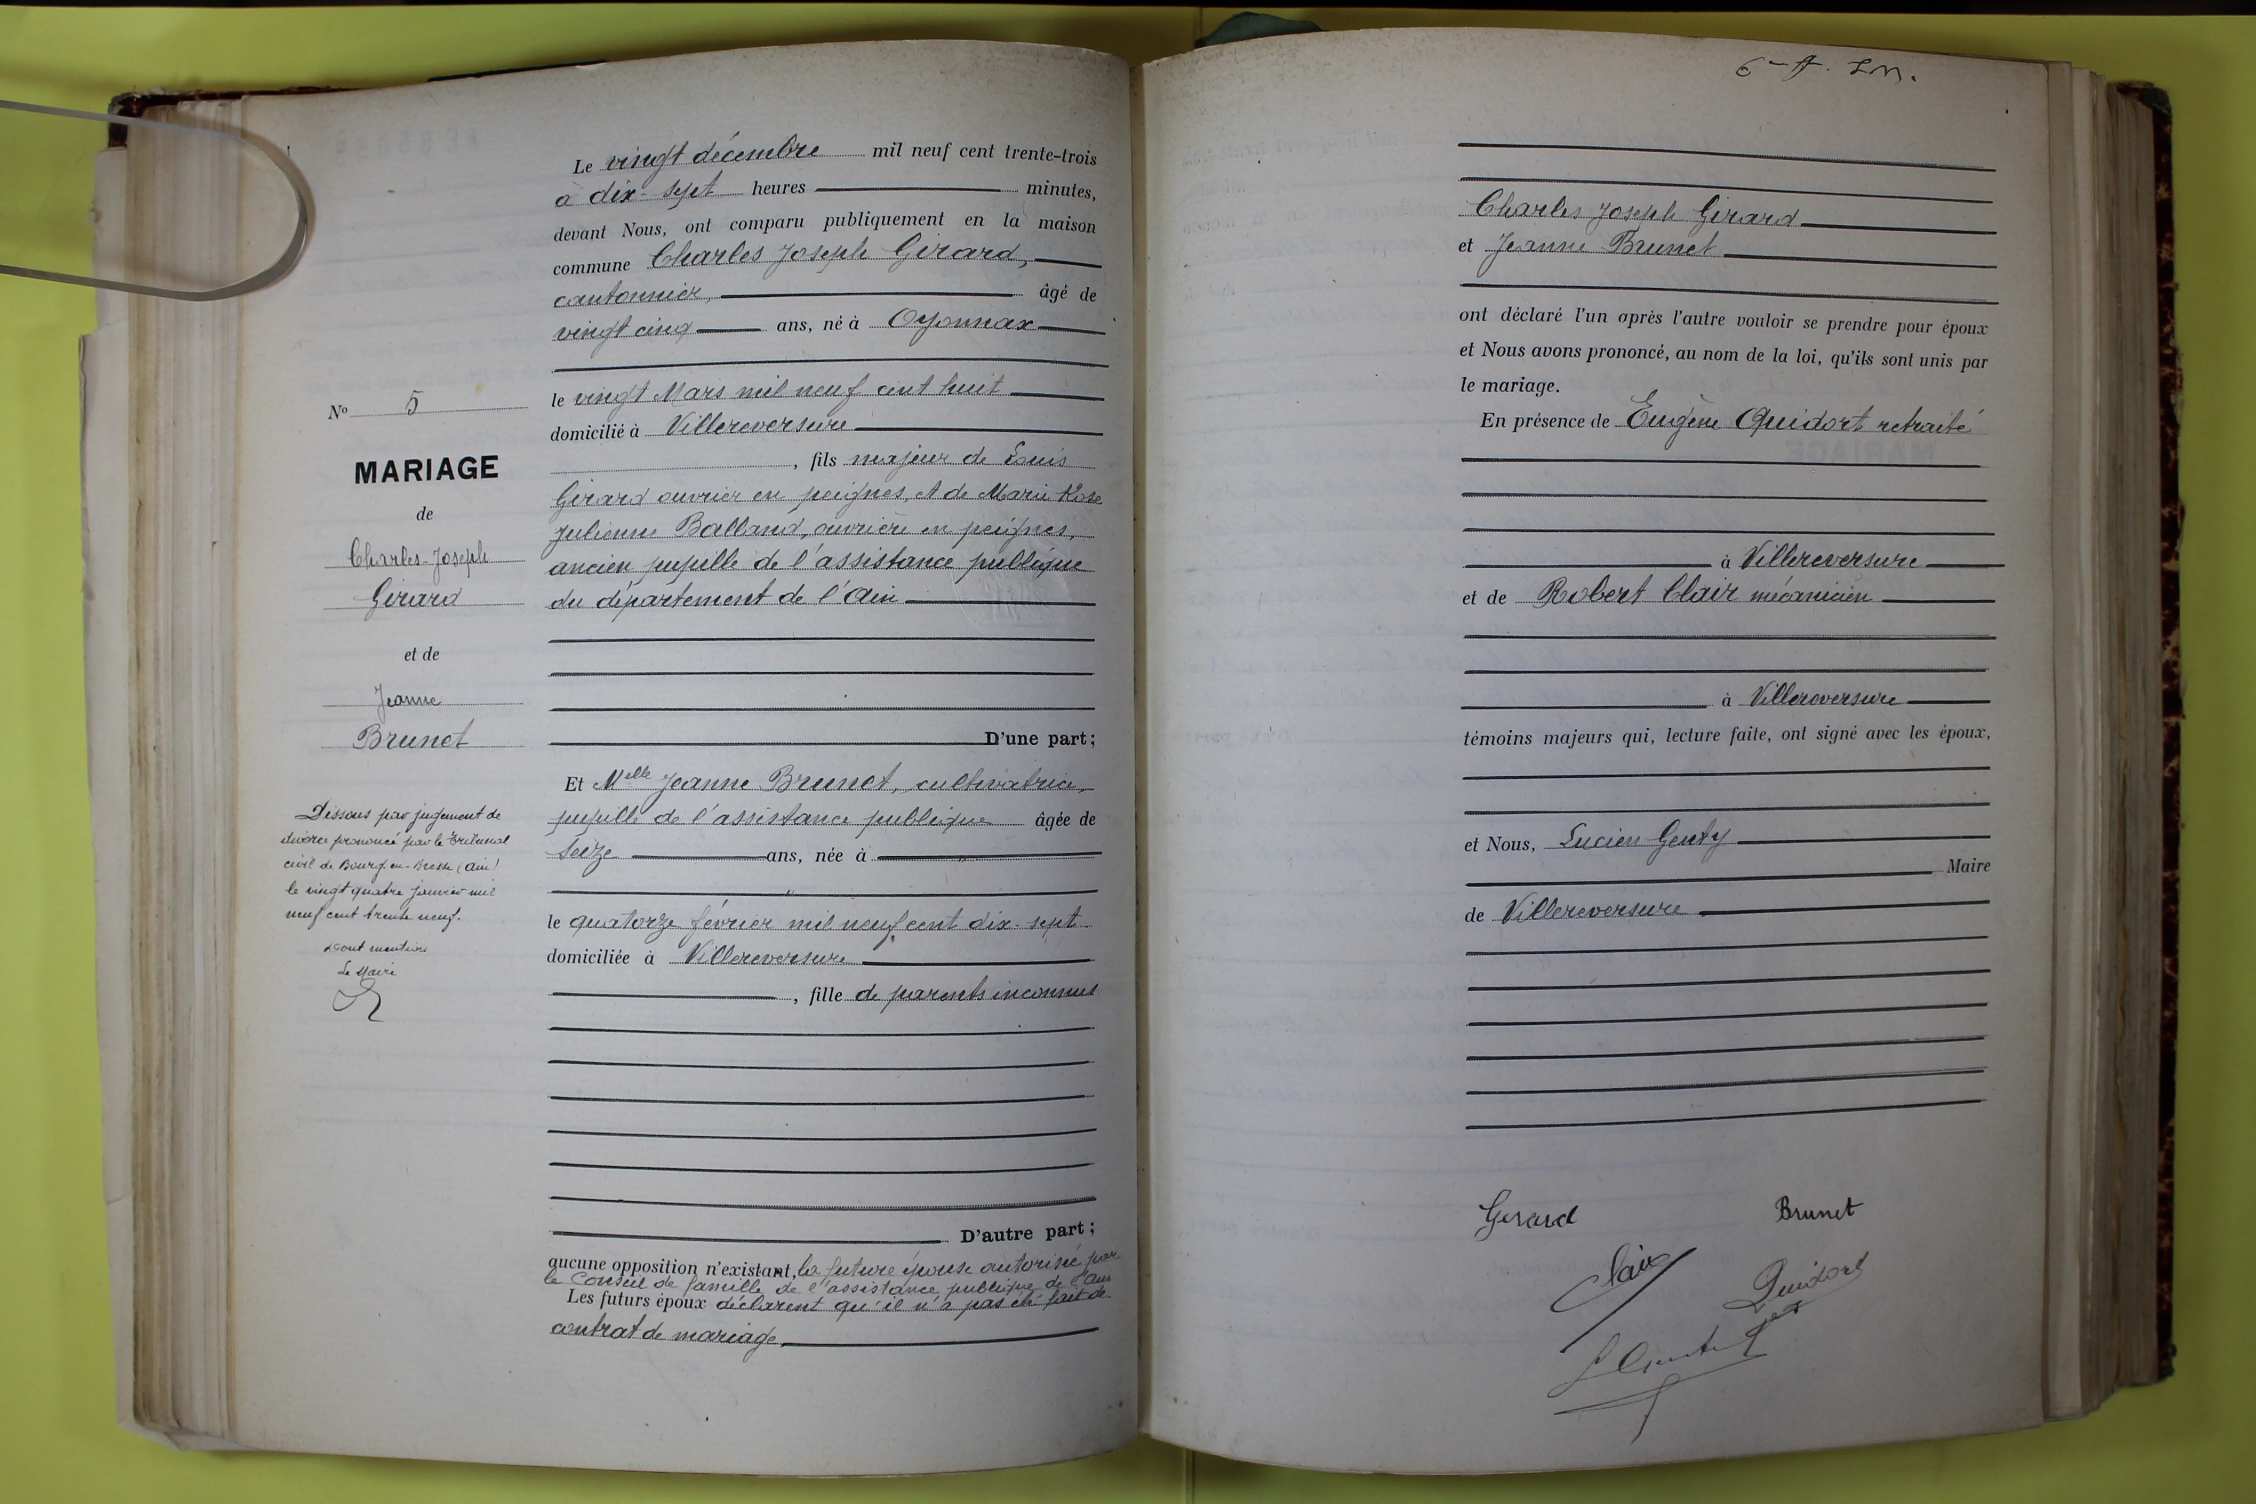 Le vingt décembre mil neuf cent trente-trois
à dix-sept heures minutes,
devant Nous, ont comparu publiquement en la maison
commune Charles Joseph Girard,
cantonnier, âgé de
vingt cinq ans, né à Oyonnax
le vingt Mars mil neuf cent huit
domicilié à Villereversure
, fils majeur de Louis
Girard ouvrier en peignes, et de Marie Rose
Julienne Balland, ouvrière en peignes,
ancien pupille de l'assistance publique
du département de l'Ain
D'une part;
Et Melle Jeanne Brunet, cultivatrice,
pupille de l'assistance publique âgée de
seize ans, née à
le quatorze février mil neuf cent dix-sept
domiciliée à Villereversure
, fille de parents inconnus
D'autre part;
aucune opposition n'existant, la future épouse autorisée par
le Conseil de famille de l'assistance publique de l'Ain
Les futurs époux déclarent qu'il n'a pas été fait de
contrat de mariage,
No 5
MARIAGE
de
Charles-Joseph
Girard
et de
Jeanne
Brunet
Dissous par jugement de
divorce prononcé par le Tribunal
civil de Bourg-en-Bresse (Ain)
le vingt quatre janvier mil
neuf cent trente neuf.
dont mention
Le Maire
Charles Joseph Girard
et Jeanne Brunet
ont déclaré l'un après l'autre vouloir se prendre pour époux
et Nous avons prononcé, au nom de la loi, qu'ils sont unis par
le mariage.
En présence de Eugène Quidort retraité
à Villereversure
et de Robert Clair mécanicien
à Villereversure
témoins majeurs qui, lecture faite, ont signé avec les époux,
et Nous, Lucien Genty
Maire
de Villereversure
Girard Brunet
Clair
Quidort